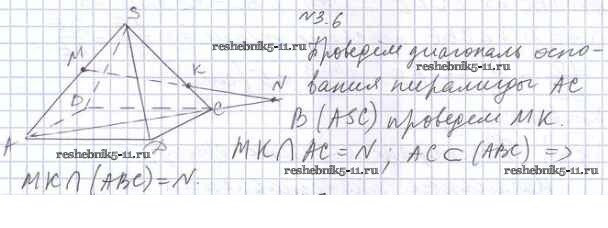 №3.6
S
reshebnik5-11.ru
Проведём диагональ осно-
M
K
N
вания пирамиды AC
D
C
reshebnik5-11.ru
В (ASC) проведем MK.
A
reshebnik5-11.ru
MK∩AC=N; AC⊂(ABC) =>
reshebnik5-11.ru
MK∩(ABC)=N.